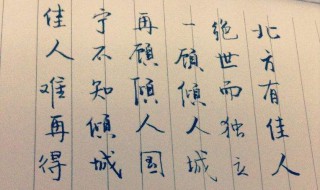 北方有佳人
绝世而独立
一顾倾人城
再顾倾人国
宁不知倾城
佳人难再得